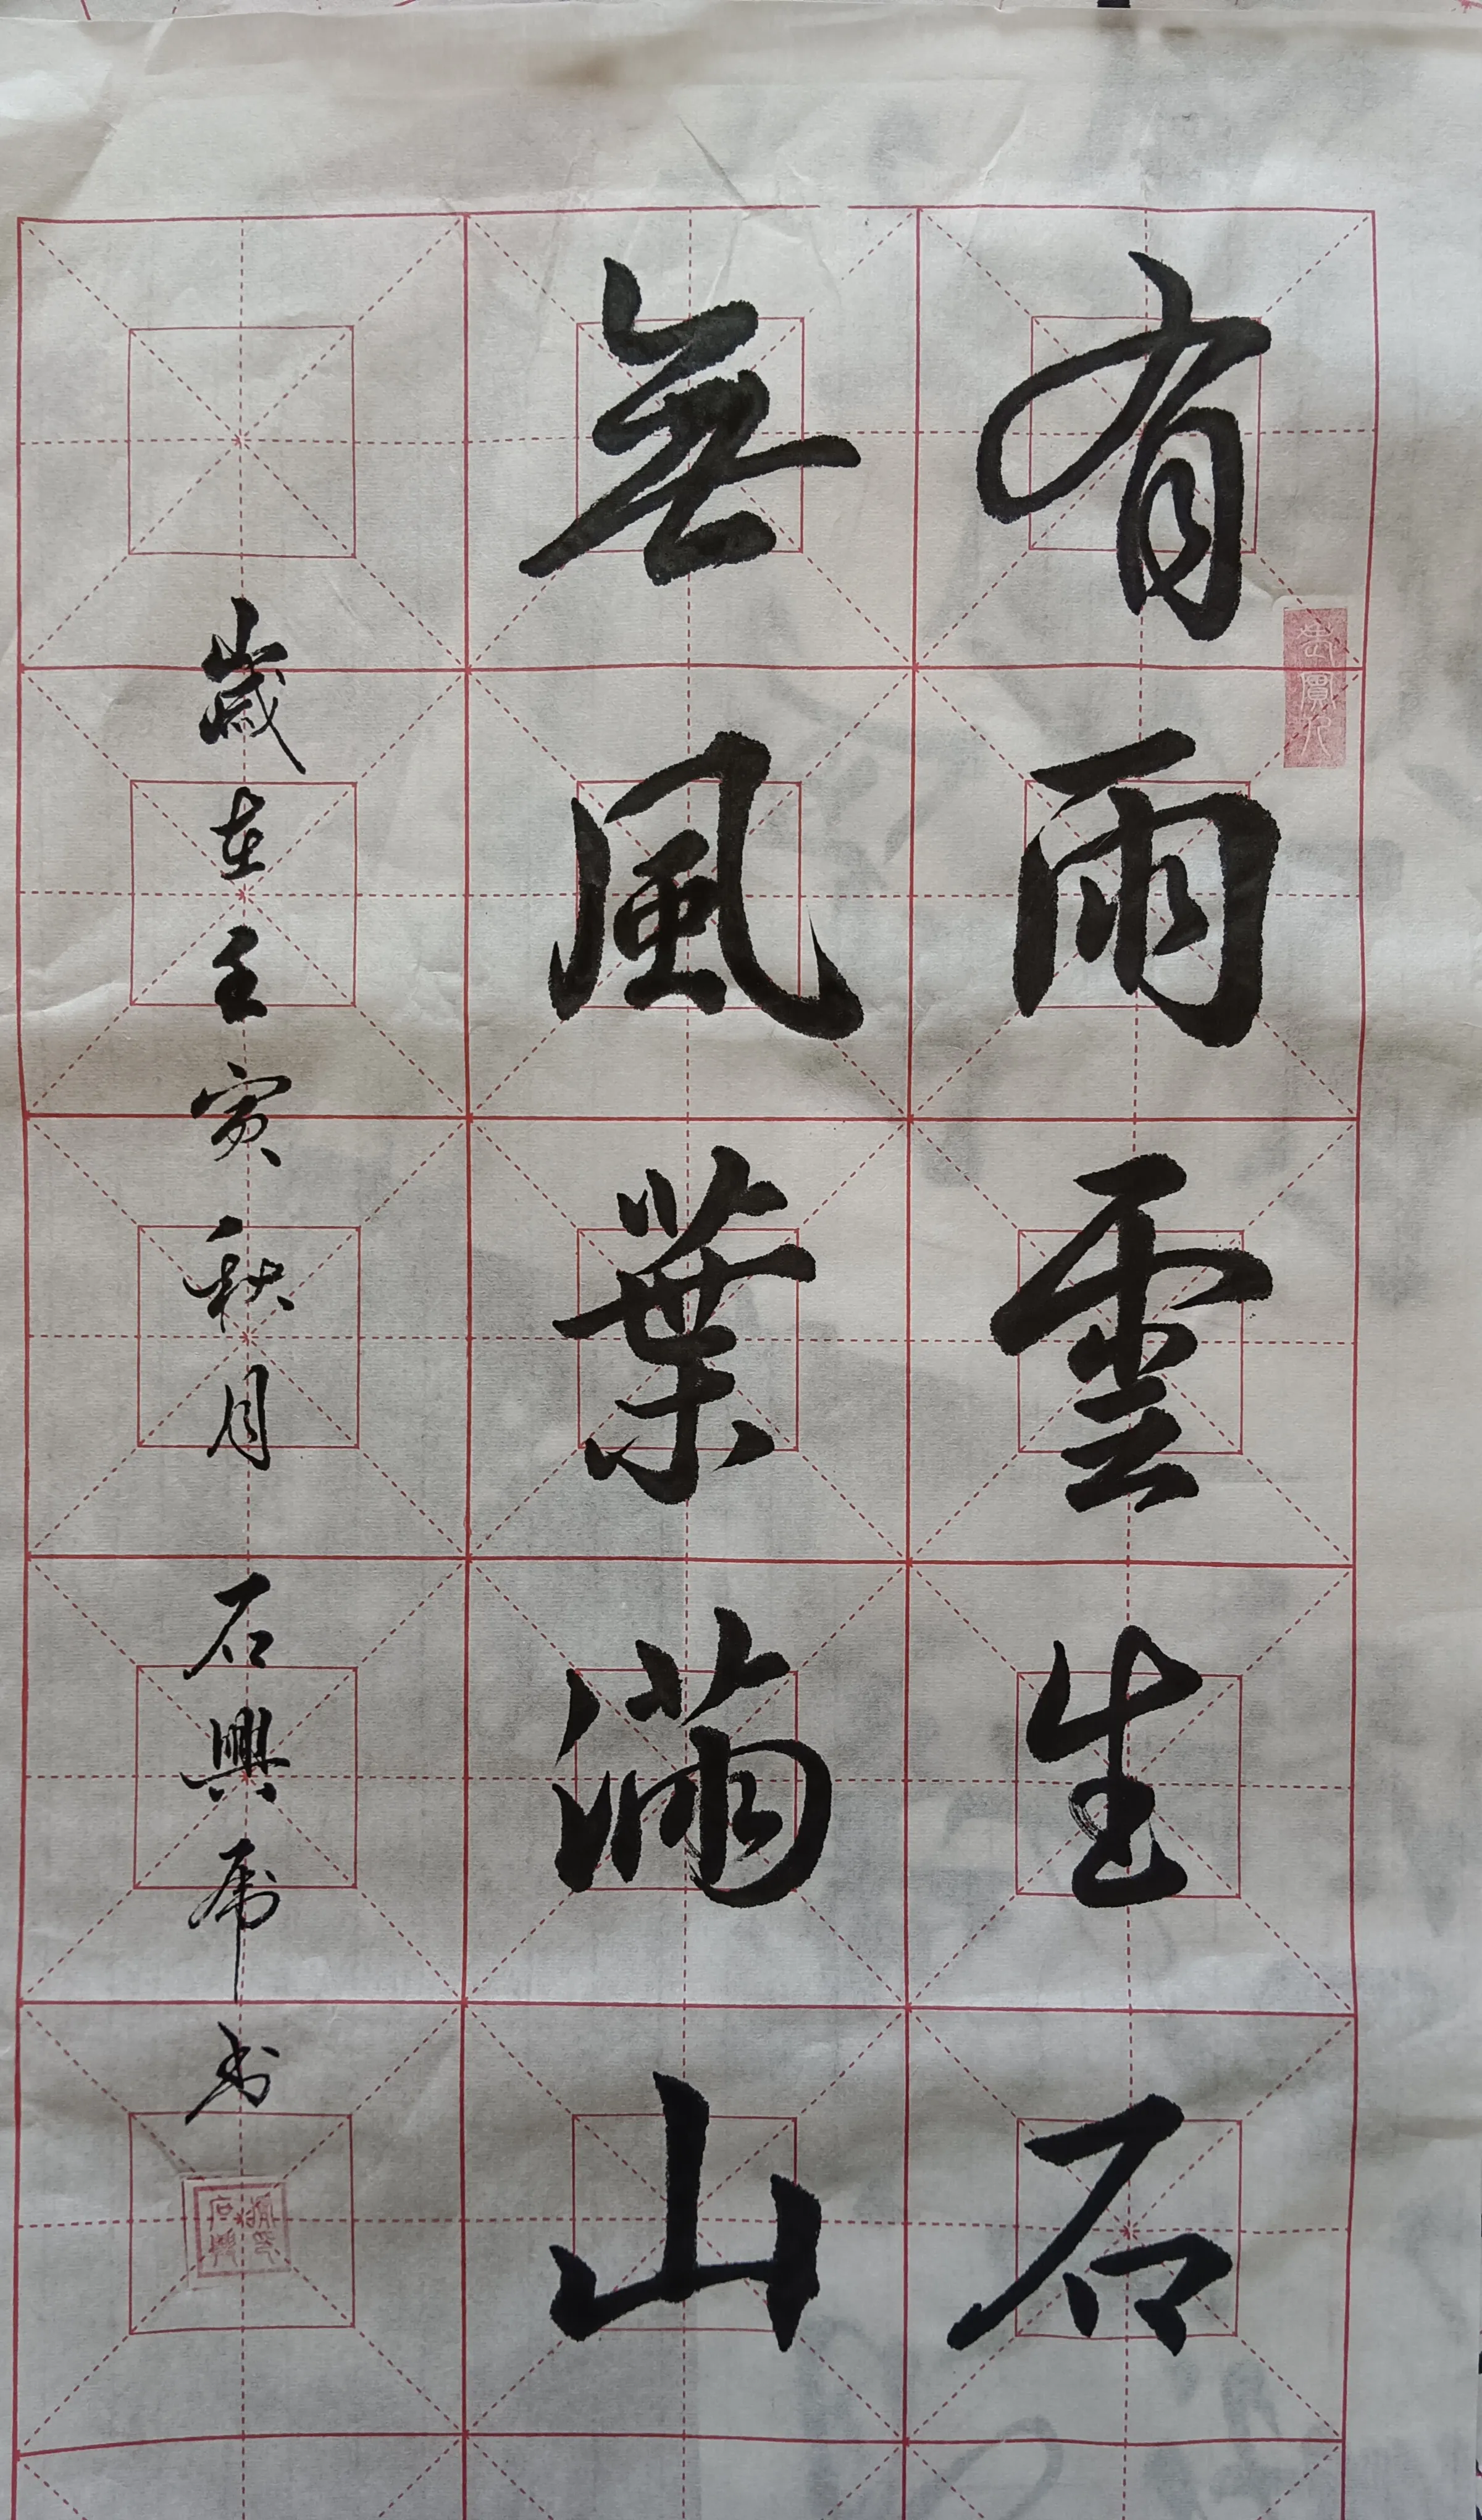 有雨雲生石
無風葉滿山
歲在壬寅秋月 石興　书